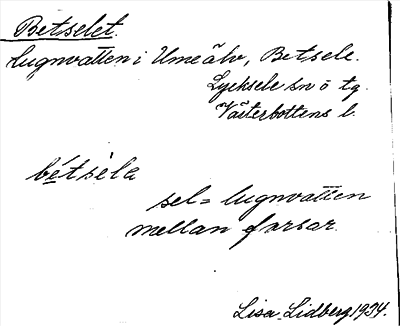 Betselet.
Lugnvatten i Umeälv, Betsele.
Lycksele sn o tg.
Västerbottens l.
bétsèla
sel = lugnvatten
mellan forsar.
Lisa Lidberg 1934.